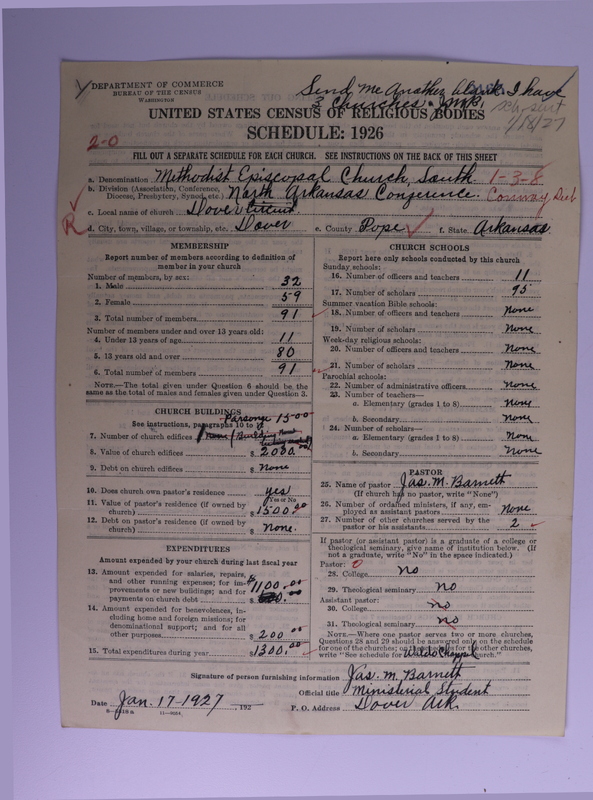 DEPARTMENT OF COMMERCE
BUREAU OF THE CENSUS
WASHINGTON
Send me Another blank I have
3 Churches. JMB.
sch. sent
1/18/27
UNITED STATES CENSUS OF RELIGIOUS BODIES
SCHEDULE: 1926
2-0
FILL OUT A SEPARATE SCHEDULE FOR EACH CHURCH. SEE INSTRUCTIONS ON THE BACK OF THIS SHEET
a. Denomination Methodist Episcopal Church, South. 1-3-8
b. Division (Association, Conference, Diocese, Presbytery, Synod, etc.) North Arkansas Conference. Conway Dist
c. Local name of church Dover Circuit.
R
d. City, town, village, or township, etc. Dover e. County Pope f. State Arkansas.
MEMBERSHIP
Report number of members according to definition of
member in your church
Number of members, by sex:
1. Male 32
2. Female 59
3. Total number of members 91
Number of members under and over 13 years old:
4. Under 13 years of age 11
5. 13 years old and over 80
6. Total number of members 91
NOTE.—The total given under Question 6 should be the
same as the total of males and females given under Question 3.
CHURCH BUILDINGS
Parsonage 1500
See instructions, paragraphs 10 to 12
7. Number of church edifices 1
8. Value of church edifices $ 2000.00
9. Debt on church edifices $ None
10. Does church own pastor's residence yes
(Yes or No)
11. Value of pastor's residence (if owned by
church) $ 1500.00
12. Debt on pastor's residence (if owned by
church) $ None.
EXPENDITURES
Amount expended by your church during last fiscal year
13. Amount expended for salaries, repairs,
and other running expenses; for im-
provements or new buildings; and for
payments on church debt $ 1100.00
14. Amount expended for benevolences, in-
cluding home and foreign missions; for
denominational support; and for all
other purposes $ 200.00
15. Total expenditures during year $ 1300.00
CHURCH SCHOOLS
Report here only schools conducted by this church
Sunday schools:
16. Number of officers and teachers 11
17. Number of scholars 95
Summer vacation Bible schools:
18. Number of officers and teachers None
19. Number of scholars None
Week-day religious schools:
20. Number of officers and teachers None
21. Number of scholars None
Parochial schools:
22. Number of administrative officers None
23. Number of teachers—
a. Elementary (grades 1 to 8) None
b. Secondary None
24. Number of scholars—
a. Elementary (grades 1 to 8) None
b. Secondary None
PASTOR
25. Name of pastor Jas. M. Barnett
(If church has no pastor, write "None")
26. Number of ordained ministers, if any, em-
ployed as assistant pastors None
27. Number of other churches served by the
pastor or his assistants 2
If pastor (or assistant pastor) is a graduate of a college or
theological seminary, give name of institution below. (If
not a graduate, write "No" in the space indicated.)
Pastor: 0
28. College No
29. Theological seminary No
Assistant pastor:
30. College No
31. Theological seminary No
NOTE.—Where one pastor serves two or more churches,
Questions 28 and 29 should be answered only on the schedule
for one of the churches; on the schedules for the other churches,
write "See schedule for Waldo Chapel Church."
Signature of person furnishing information Jas. M. Barnett
Official title Ministerial Student
Date Jan. 17-1927, 192
P. O. Address Dover Ark.